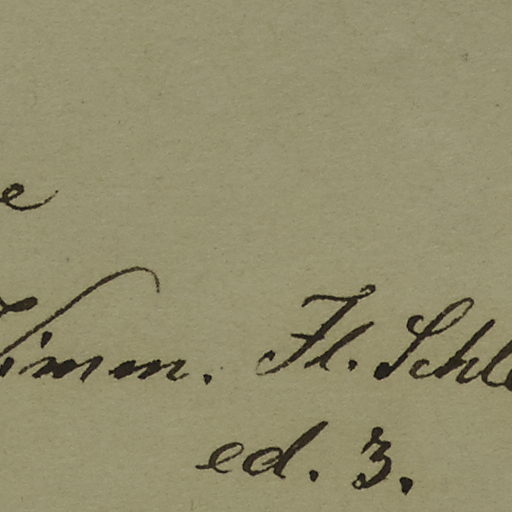 e
Wimm. Fl. Schle
ed. 3.